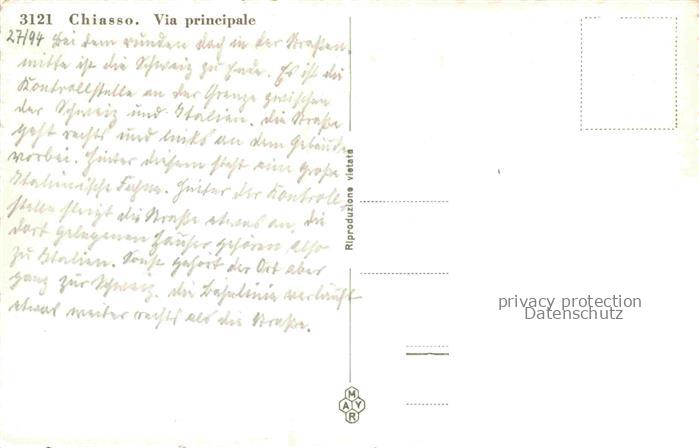 3121 Chiasso. Via principale
27/94 Bei dem runden dach in der Straßen
mitte ist die Schweiz zu Ende. Es ist die
Kontrollstelle an der Grenze zwischen
der Schweiz und Italien. Die Straße
geht rechts und links an dem Gebäude
vorbei. Hinter diesem steht eine große
Italienische Fahne. Hinter der Kontroll-
stelle steigt die Straße etwas an, die
dort gelegenen Häuser gehören also
zu Italien. Sonst gehört der Ort aber
ganz zur Schweiz. Die Bahnlinie verläuft
etwas weiter rechts als die Straße.
Riproduzione vietata
privacy protection
Datenschutz
MAYR